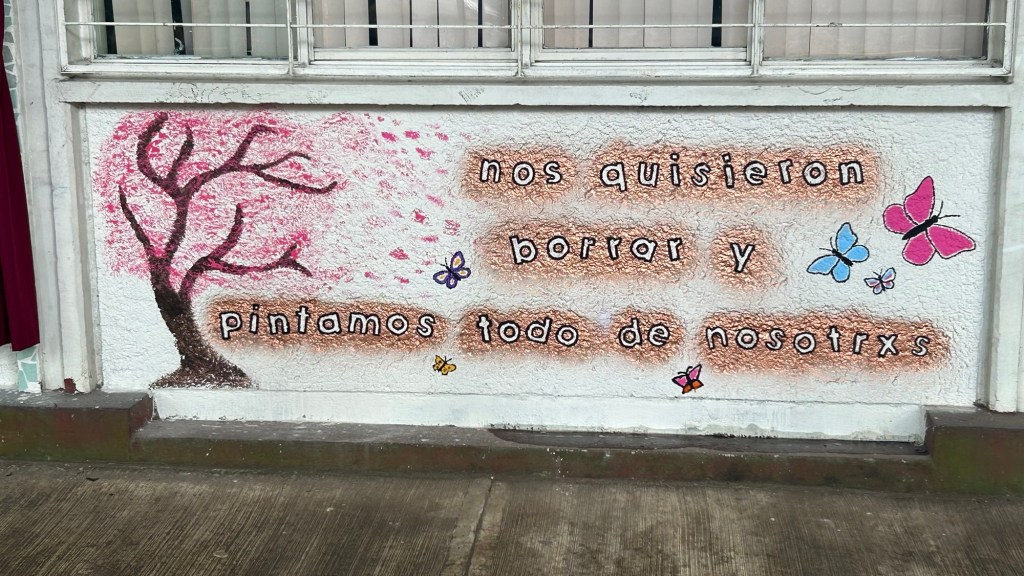 nos quisieron
borrar y
pintamos todo de nosotrxs